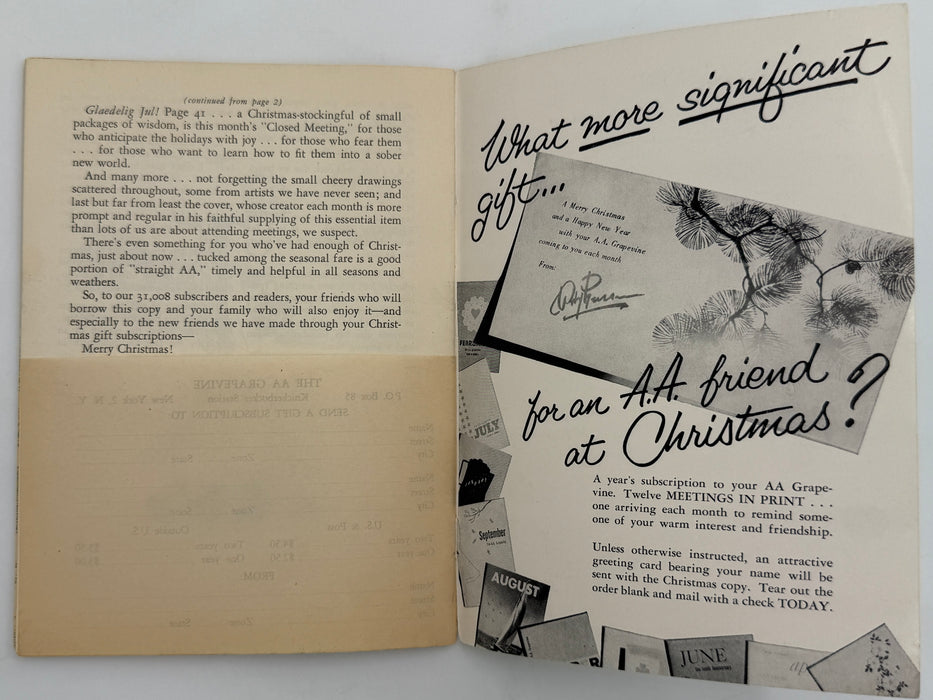 (continued from page 2)
Glaedelig Jul! Page 41 . . . a Christmas-stockingful of small
packages of wisdom, is this month's "Closed Meeting," for those
who anticipate the holidays with joy . . . for those who fear them
. . . for those who want to learn how to fit them into a sober
new world.
And many more . . . not forgetting the small cheery drawings
scattered throughout, some from artists we have never seen; and
last but far from least the cover, whose creator each month is more
prompt and regular in his faithful supplying of this essential item
than lots of us are about attending meetings, we suspect.
There's even something for you who've had enough of Christ-
mas, just about now . . . tucked among the seasonal fare is a good
portion of "straight AA," timely and helpful in all seasons and
weathers.
So, to our 31,008 subscribers and readers, your friends who will
borrow this copy and your family who will also enjoy it—and
especially to the new friends we have made through your Christ-
mas gift subscriptions—
Merry Christmas!
THE AA GRAPEVINE
P.O. Box 85 Knickerbocker Station New York 2, N. Y.
SEND A GIFT SUBSCRIPTION TO
Name
Street
City Zone State
Name
Street
City Zone State
U.S. & Poss. Outside U.S.
Two years $4.50 Two years $5.50
One year $2.50 One year $3.00
FROM
Name
Street
City Zone State
What more significant
gift...
A Merry Christmas
and a Happy New Year
with your A.A. Grapevine
coming to you each month
From:
for an A.A. friend
at Christmas?
A year's subscription to your AA Grape-
vine. Twelve MEETINGS IN PRINT . . .
one arriving each month to remind some-
one of your warm interest and friendship.
Unless otherwise instructed, an attractive
greeting card bearing your name will be
sent with the Christmas copy. Tear out the
order blank and mail with a check TODAY.
JULY
September
AUGUST
JUNE